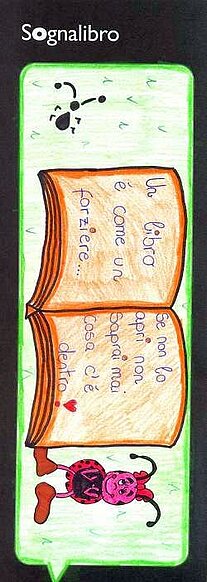 Sognalibro
Un libro
é come un
forziere...
Se non lo
apri non
saprai mai
cosa c'é
dentro!